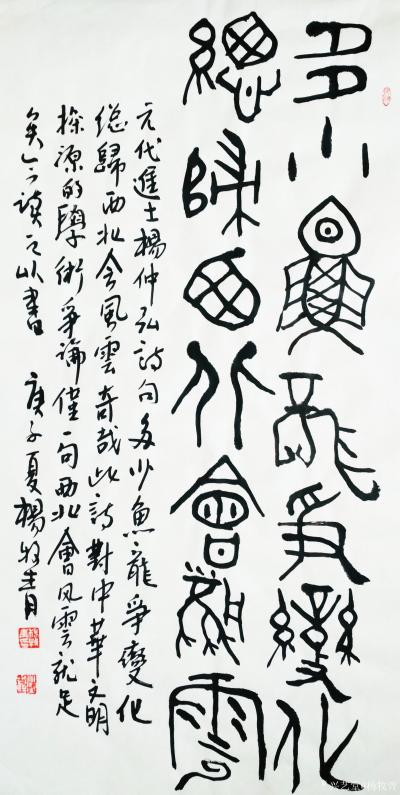 多少魚龍爭變化
總歸西北會風雲
元代進士楊仲弘詩句多少魚龍爭變化
總歸西北会風雲奇哉此詩對中華文明
探源的學術爭論僅一句西北會風雲就足
矣今讀之以書 庚子夏楊牧青